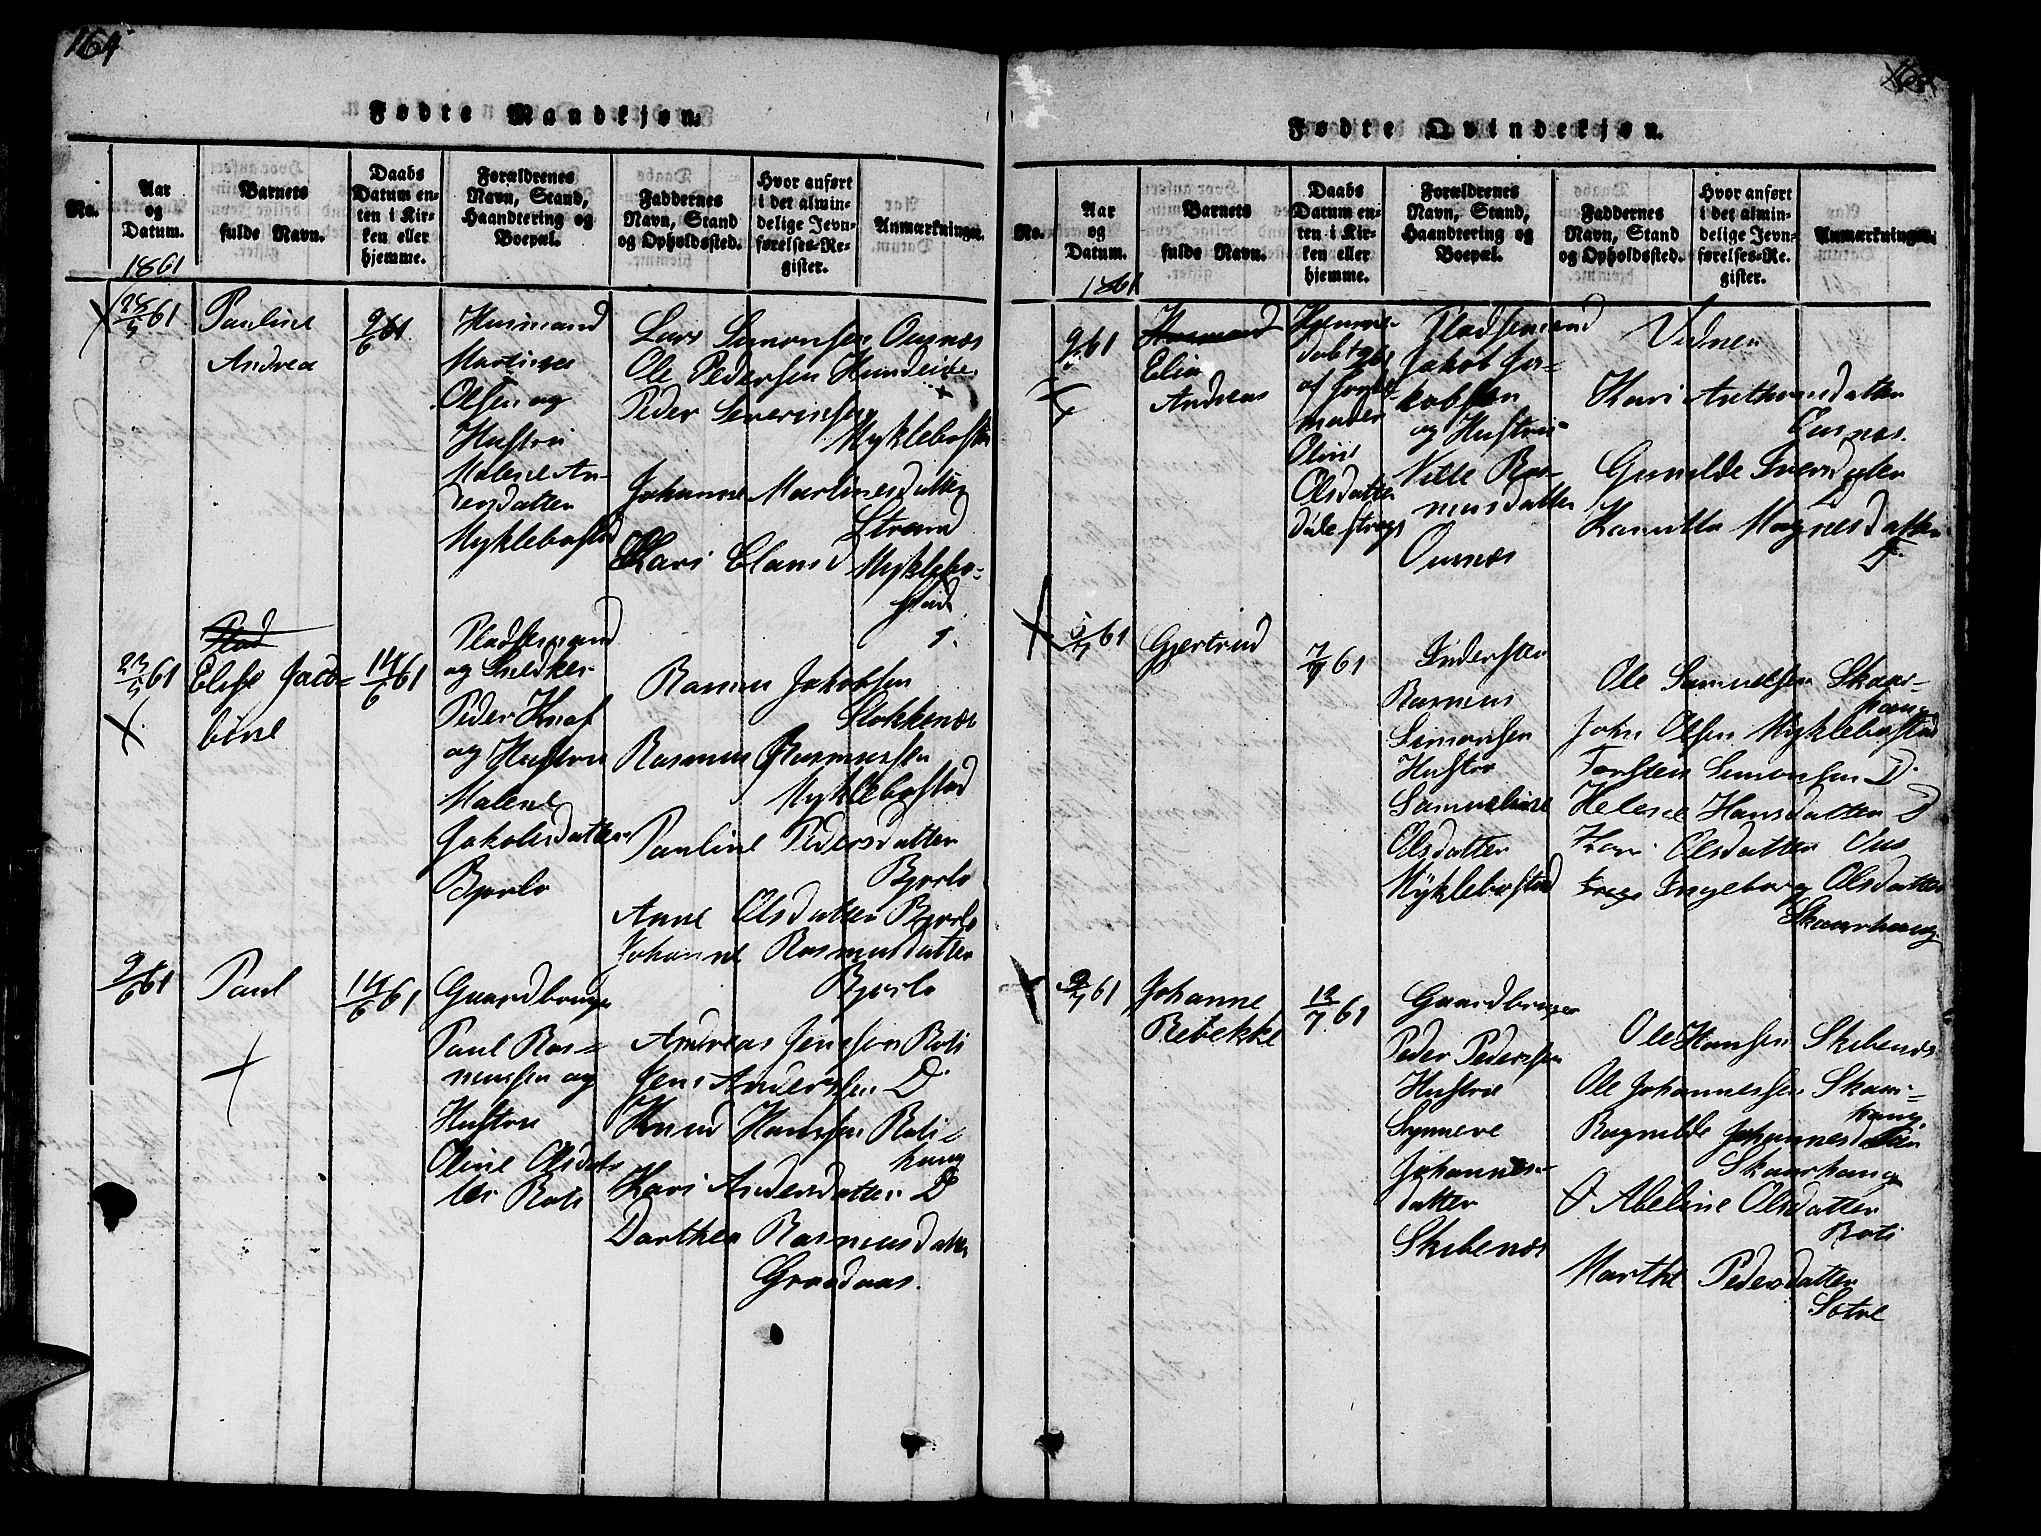 164
Fødte Mandkjøn.
No.
Aar
og
Datum.
Barnets
fulde Navn.
Daabs
Datum en-
ten i Kir-
ken eller
hjemme.
Forældrenes
Navn, Stand,
Haandtering og
Boepæl.
Faddernes
Navn, Stand
og Opholdssted.
Hvor anført
i det almin-
delige Jevn-
førelses-Re-
gister.
Anmærkninger.
1861
28/5 61
Pauline
Andrea
9/6 61
Husmand
Martinus
Olsen og
Hustru
Malene An-
dersdatter
Myklebostad
Lars Simonsen Ournæs
Ole Pedersen Hundeide
Peder Severinsen
Myklebostad
Johanne Martinesdatter
Strand
Kari Clausd Myklebo-
stad
23/5 61
Elise Jaco-
bine
14/6 61
Pladsemand
og
Peder Knaf
og Hustru
Malene
Jakobsdatter
Bjorlo
Rasmus Jakobsen
Stokkenæs
Rasmus Rasmussen
Myklebostad
Pauline Pedersdatter
Bjorlo
Anne Olsdatter Bjorlo
Johanne Rasmusdatter
Bjorlo
9/6 61
Paul
14/6 61
Gaardbruger
Paul Ras-
mussen og
Hustru
Oline Olsdat-
ter Roti
Andreas Jensen Roti
Jens Andersen D
Knud Hansen Roti-
haug
Kari Andersdatter D
Dorthea Rasmusdatter
Graadaas.
Fødte Qvindekjøn.
No.
Aar
og
Datum.
Barnets
fulde Navn.
Daabs
Datum en-
ten i Kir-
ken eller
hjemme.
Forældrenes
Navn, Stand,
Haandtering og
Boepæl.
Faddernes
Navn, Stand
og Opholdssted.
Hvor anført
i det almin-
delige Jevn-
førelses-Re-
gister.
Anmærkninger.
1861
61
Elias
Andreas
Hjemme-
af
moder
Oline
Olsdatter
Pladsemand
Jakob Ja-
kobsen
og Hustru
Ras-
musdatter
Ournæs
Vidner
Kari Anthonsdatter
Ournæs.
Gunilde Iversdatter
D
Magnesdatter
D.
5/7 61
Gjertrud
7/7 61
Inderster
Rasmus
Simonsen
Hustru
Samueline
Olsdatter
Myklebostad
Ole Samuelsen Skaar-
haug
John Olsen Myklebostad
Torsten Simonsen D
Helene Hansdatter D
Olsdatter Aus
Ingeborg Olsdatter
Skaarhaug
9/7 61
Johanne
Rebekke
12/7 61
Gaardbruger
Peder Pedersen
Hustru
Synneve
Johannes-
datter
Skibenæs
Ole Hansen Skibenæs
Ole Johannessen Skaar-
haug
Ragnilde Johannesdatter
Skaarhaug
Abeline Olsdatter
Roti
Marthe Pedersdatter
Sætre